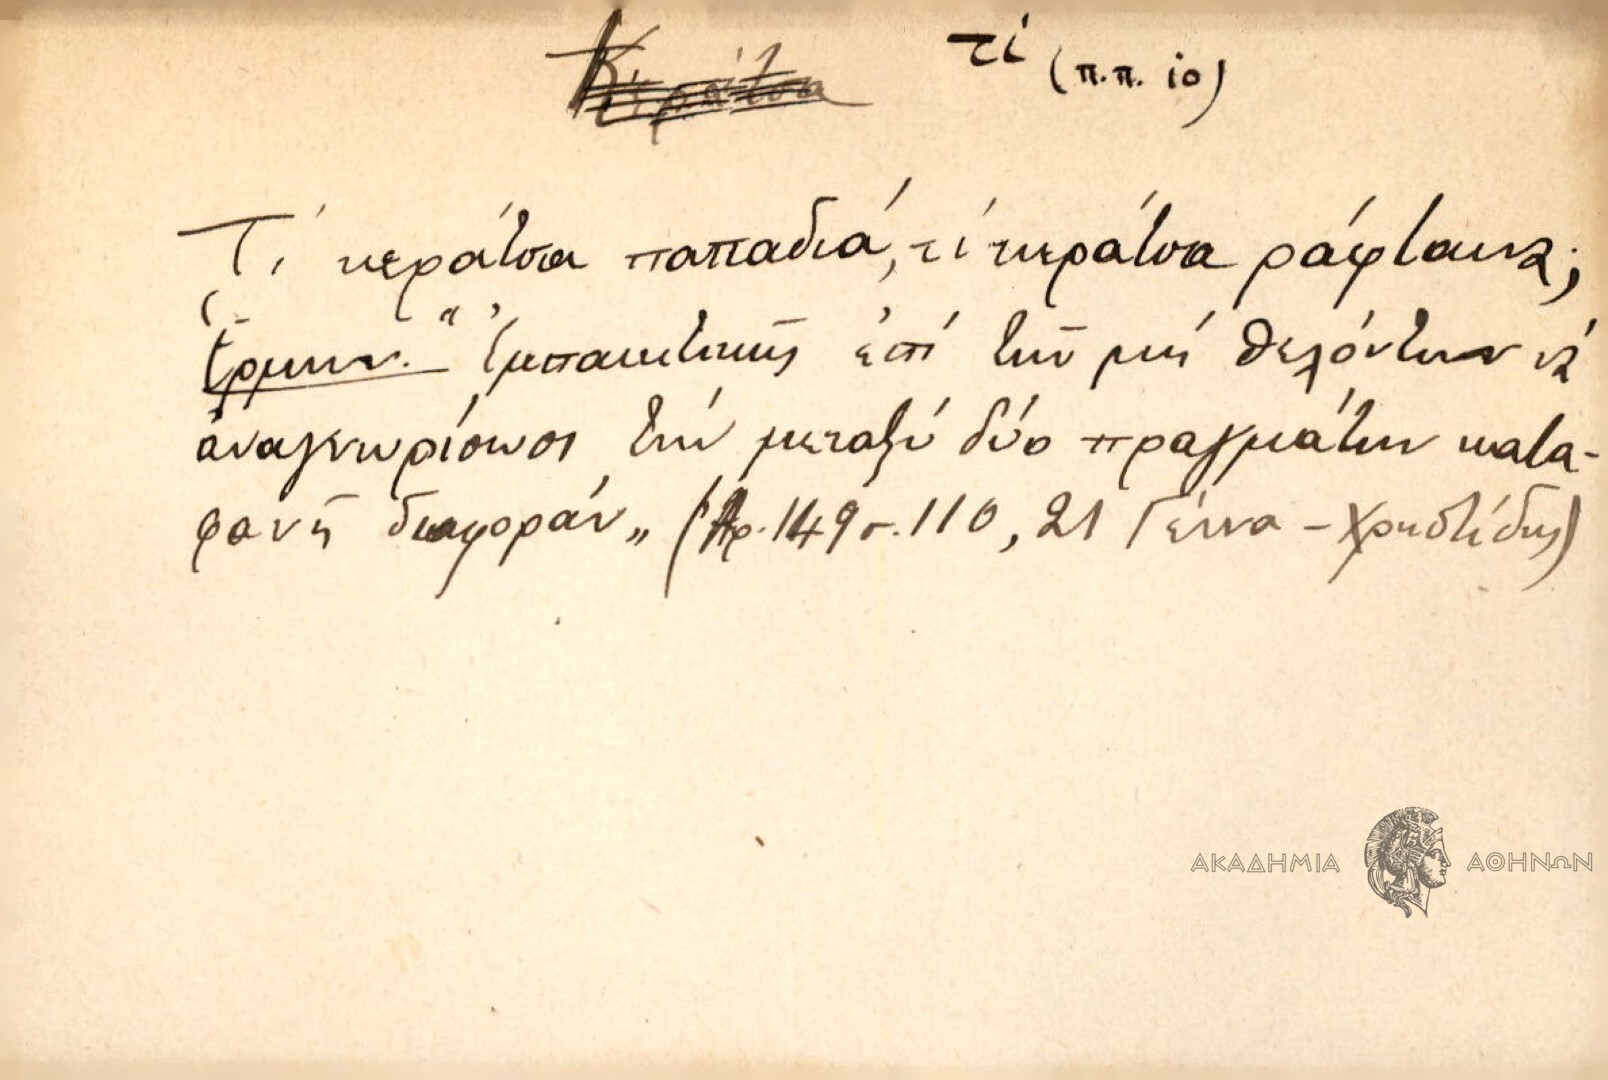 Κεράτσα τί (π.π. ιο)
Τί κεράτσα παπαδιά, τί κεράτσα ράφταινα;
Ἑρμην. "Ἐμπαικτικῶς ἐπί τῶν μή θελόντων νά
ἀναγνωρίσωσι τήν μεταξύ δύο πραγμάτων κατα-
φανῆ διαφοράν„ (Ἀρ. 149 σ. 110, 21 Γέννα - Χρηστίδης)
ΑΚΑΔΗΜΙΑ ΑΘΗΝΩΝ